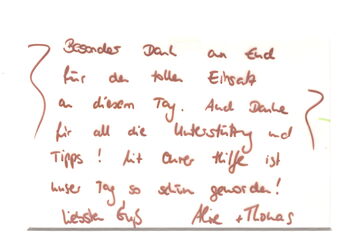 Besonder Dank an Euch
für den tollen Einsatz
an diesem Tag. Auch Danke
für all die Unterstützung und
Tipps! Mit Eurer Hilfe ist
unser Tag so schön geworden!
liebsten Gruß Aline + Thomas